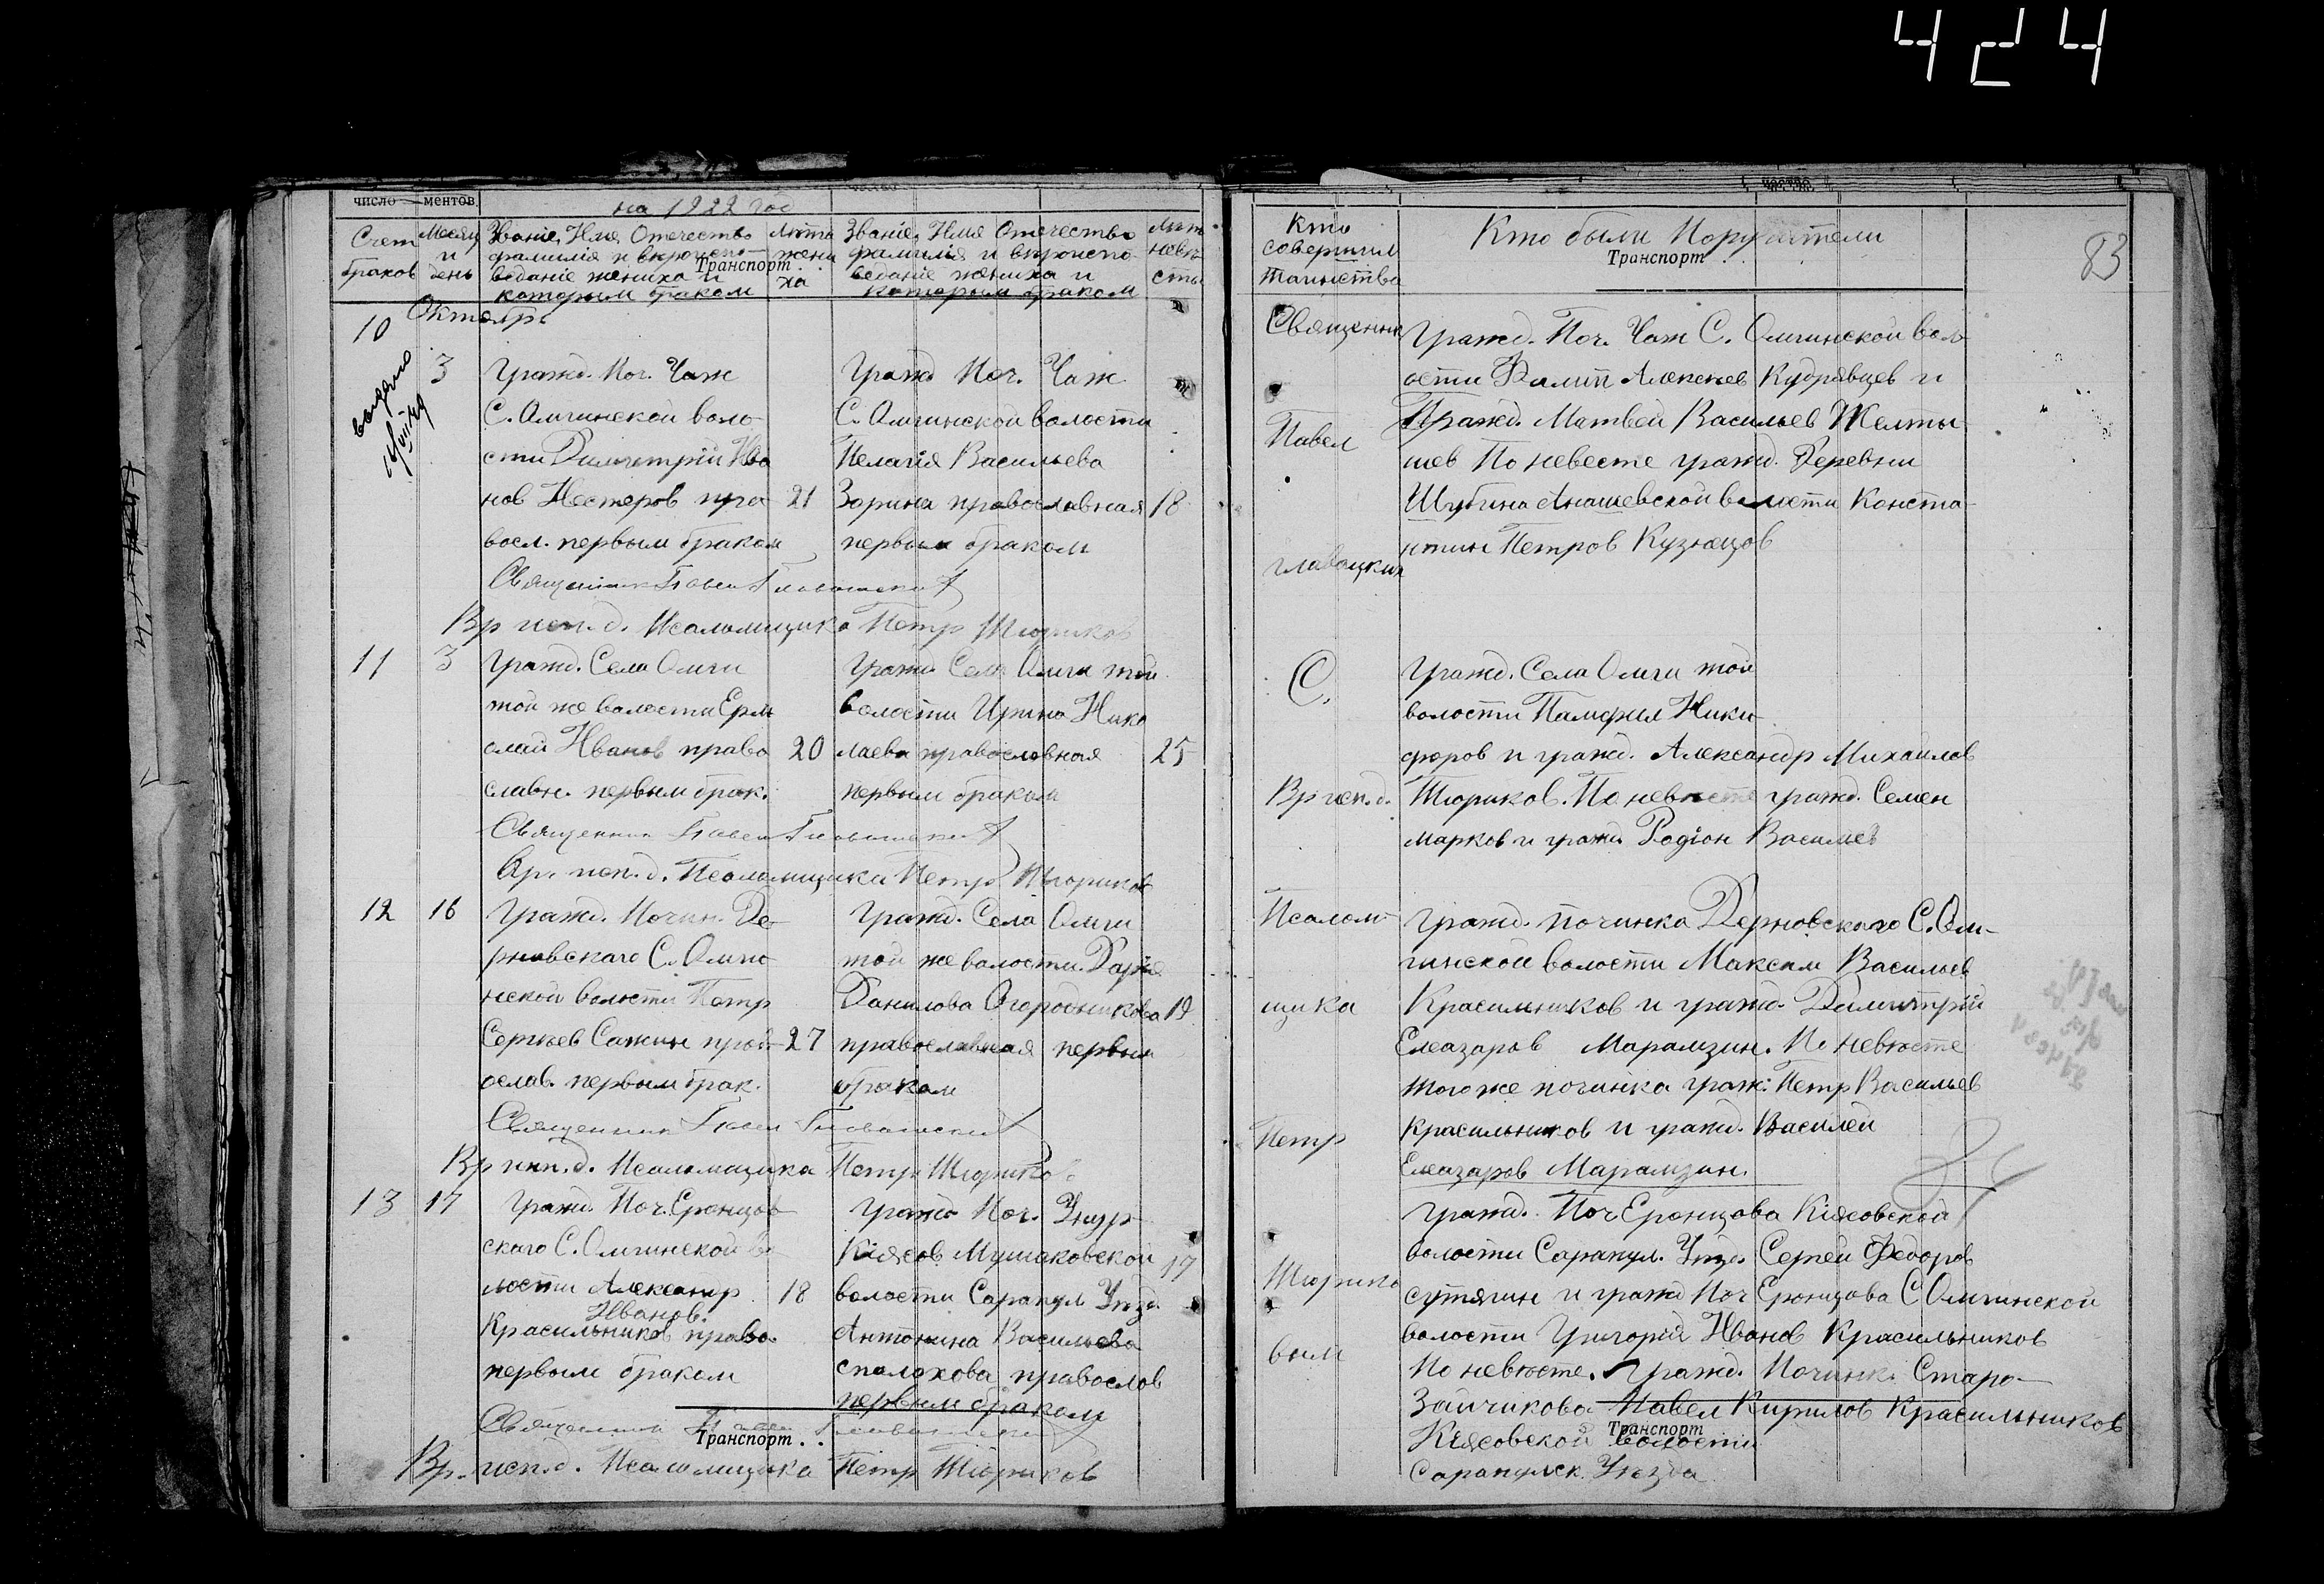 424
число
ментов.
на 1922 год
Счет браков
Месяц и день
Званіе, Имя, Отечество
фамилія и вѣроиспо-
веданіе жениха и
которым браком
Транспорт . .
Лѣта жени ха
Званіе, Имя Отечество
фамилія и вѣроиспо-
веданіе жениха и
которым браком
невѣ-
сты
Октябрь
10
3
выдано
Гражд. Поч. Чаж
С. Омгинской воло-
сти Димитрій Ива
нов Нестеров пра- 21
восл. первым браком
Гражд Поч. Чаж
С. Омгинской волости
Пелагія Васильева
Зорина православная 18
первым браком
Священник Павел
Вр исп. д. Псаломщика Петр Шюриков
11
3
Гражд. Села Омги
той же волости Ерм
олай Иванов право 20
славн. первым брак.
Гражд. Села Омги той
волости Ирина Нико
лаева православная 25
первым браком
Священник Павел
Вр. исп. д. Псаломщика Петр Шюриков
12
16
Гражд. Почин. Де-
рновскаго С. Омги-
нской волости Петр
Сергѣев Сажин прав- 27
ослав. первым брак.
Гражд. Села Омги
той же волости. Дарія
Данилова Огородникова 19
православная первым
браком
Священник Павел
Вр исп. д. Псаломщика Петр Шюриков
13
17
Гражд. Поч. Еронцов-
скаго С. Омгинской во
лости Александр 18
Иванов.
Красильников право.
первым браком
Гражд Поч.
Кіясов Мушаковской 17
волости Сарапул Уѣзд.
Антонина Васильева
сполохова православ
первым браком
Священник Павел
Транспорт . .
Вр. исп. д. Псаломщика Петр Шюриков
Кто
совершил
таинство
Кто были Поручители
Транспорт
83
Священник
Павел
главацкий
С.
Вр исп. д.
Псалом-
щика
Петр
Шюрико
вым
Гражд. Поч. Чаж С. Омгинской вол-
ости Филип Алексеев Кудрявцев и
Гражд. Матвей Васильев Желты
шев По невесте гражд. Деревни
Шубина Анашевской волости Конста-
нтин Петров Кузнецов
Гражд. Села Омги той
волости Памфил Ники-
форов и гражд. Александр Михаилов
Шюриков. По невѣсте гражд. Семен
марков и гражд Родіон Васильев
Гражд. починка Дерновскаго С. Ом-
гинской волости Максим Васильев
Красильников и гражд. Димитрій
Елеазаров Марамзин. По невѣсте
того же починка граж: Петр Васильев
Красильников и гражд. Василей
Елеазаров Марамзин.
Гражд. Поч Еронцова Кіясовской
волости Сарапул. Уѣзд. Сергей Федоров
сутягин и гражд Поч Еронцова С Омгинской
волости Григорій Иванов Красильников
По невѣсте. Гражд. Починк. Старо-
Зайчикова Павел Кирилов Красильников
Транспорт
Кіясовской волости
Сарапульск. Уѣзда